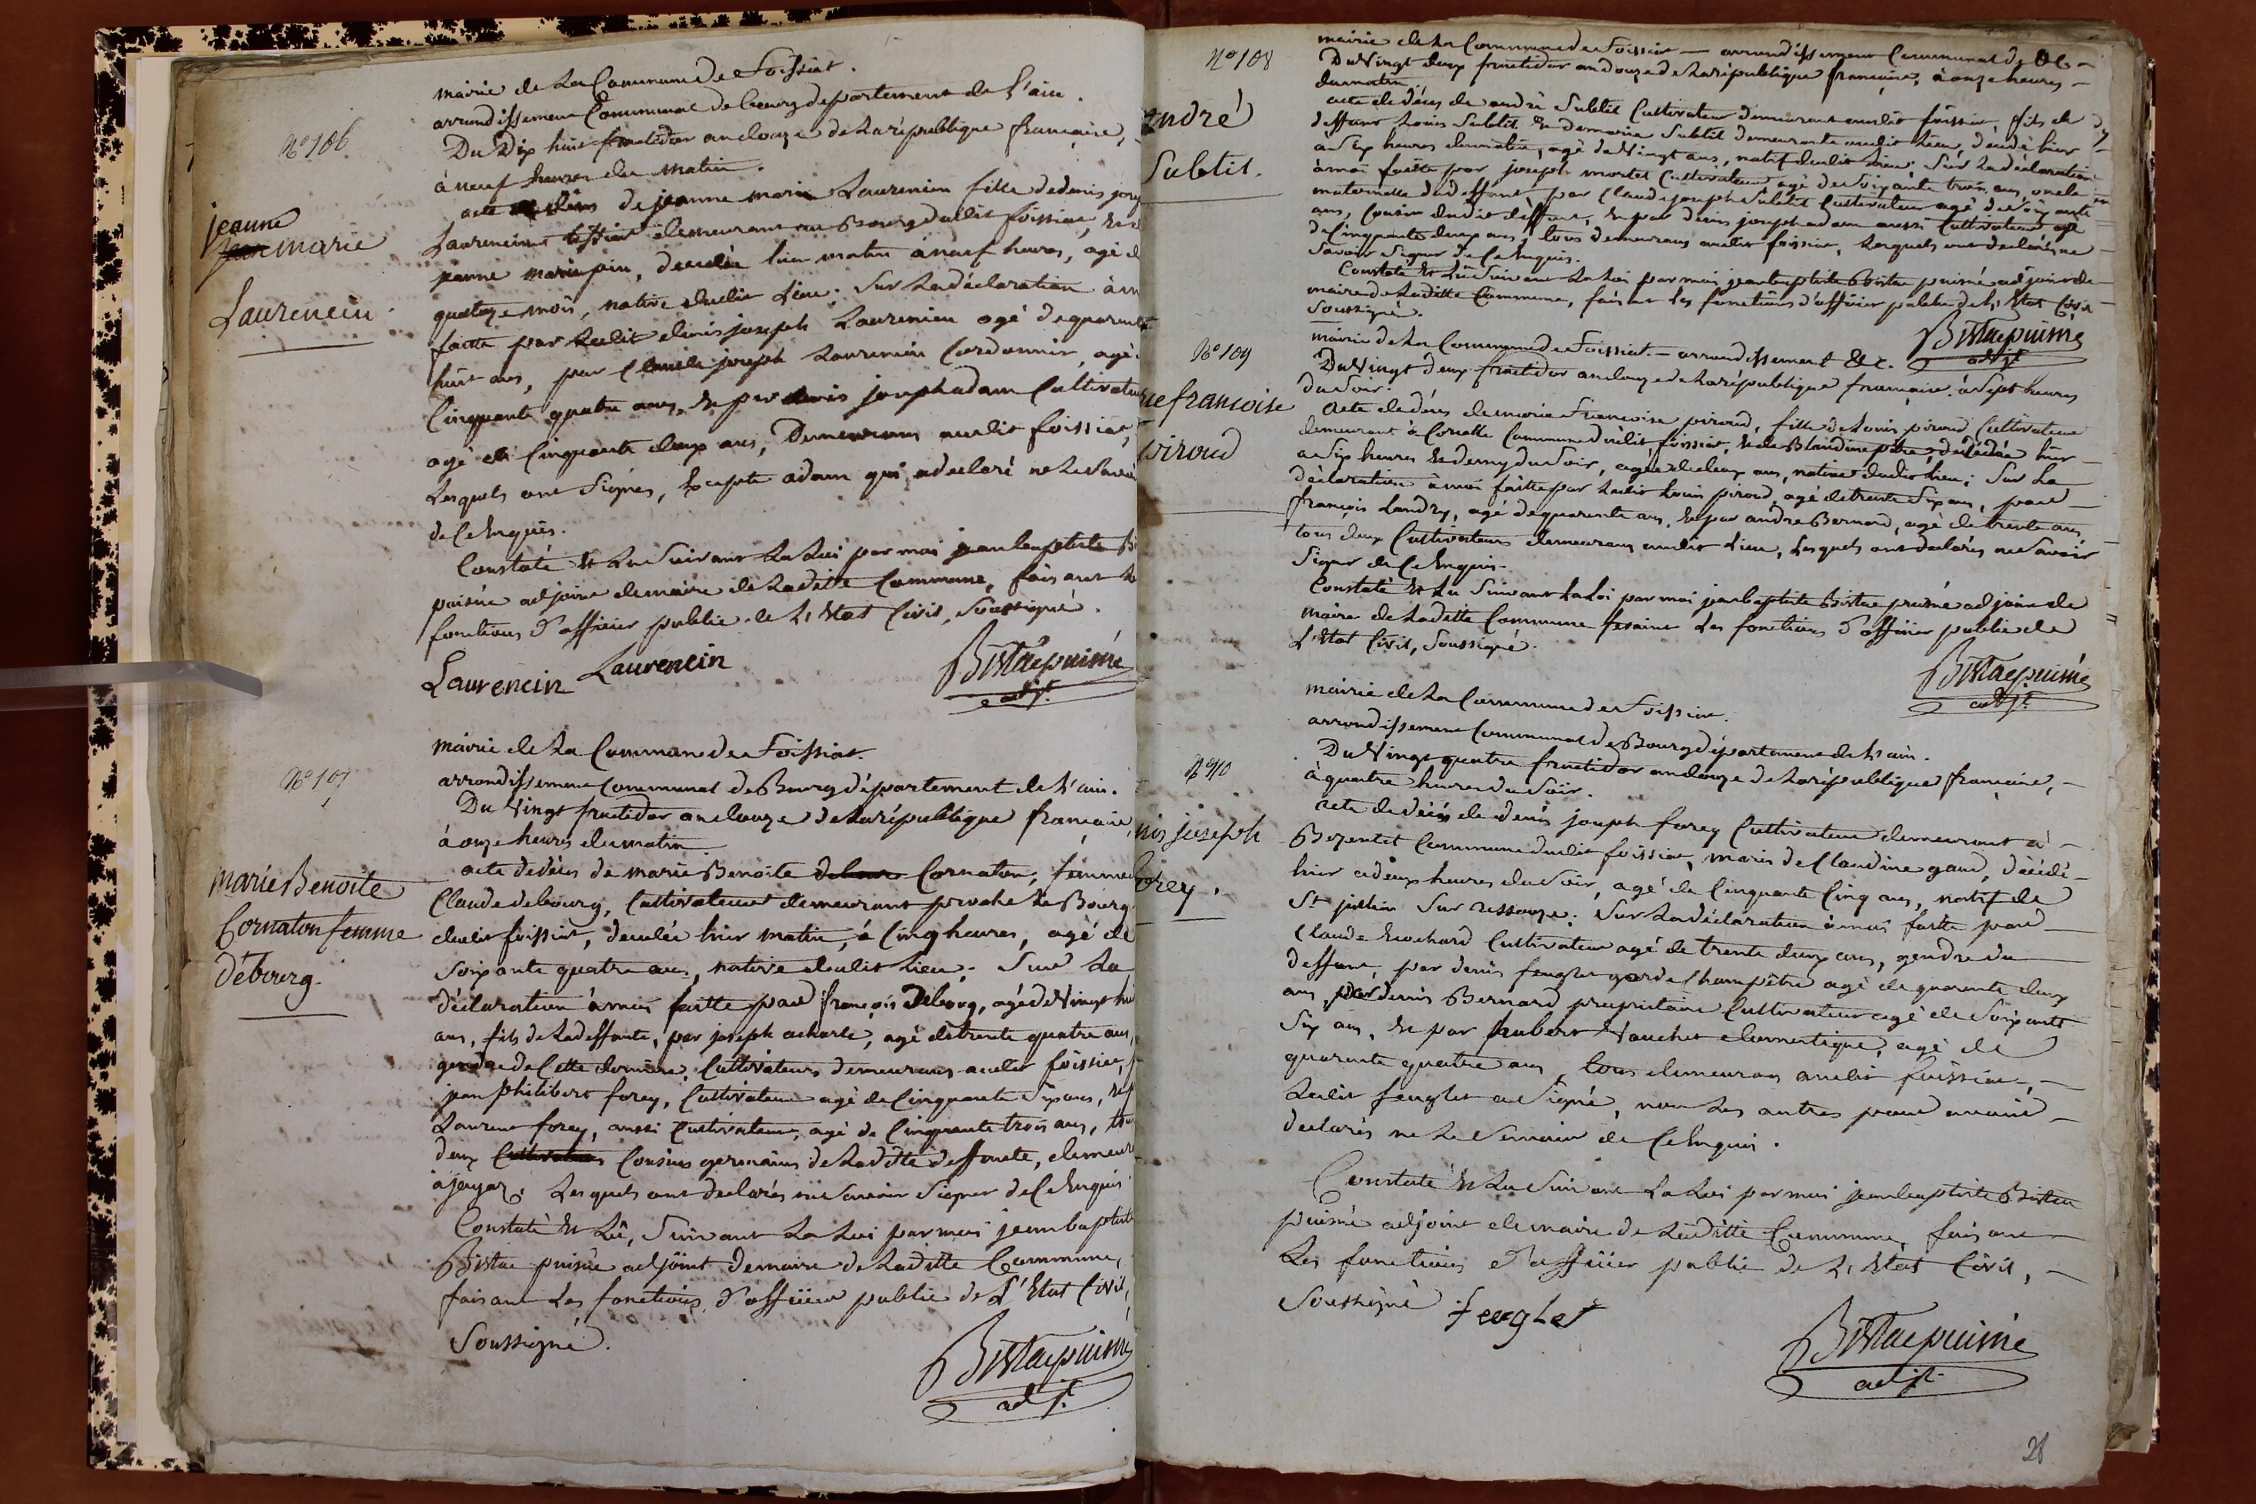 mairie de La Commune de Foissiat.
arrondissement Communal de bourg departement de l'ain.
N° 106
Du Dix huit fructidor an douze de La république française,
à neuf heures du matin.
acte de décès de jeanne marie Laurencin fille de denis joseph
jeanne
marie
Laurencin
Laurencin tissier demeurant au Bourg dudit foissiat, et de
jeanne marie pin, decedée hier matin à neuf heures, agé de
quatorze mois, native dudit Lieu; Sur La déclaration à m
faitte par Ledit denis joseph Laurencin agé de quarante
huit ans, par Claude joseph Laurencin Cordonnier, agé
Cinquante quatre ans, et par denis joseph adam Cultivateur
agé de Cinquante deux ans, Demeurans audit foissiat,
Lesquels ont Signés, Excepté adam qui a declaré ne Le Savoir
de Ce Enquis.
Constaté et Lu Suivant La Loi par moi jean baptiste Bi
puisné adjoint de maire de Laditte Commune, faisant Les
fonctions d'officier public de L'Etat Civil, Soussigné.
Laurencin Laurencin Bistac puiné
adjt.
mairie de La Commune de Foissiat.
N° 107
arrondissement Communal de Bourg département de L'ain.
Du Vingt fructidor an douze de La république française,
à onze heures du matin.
acte de décès de marie Benoite Cornaton, femme
marie Benoite
Cornaton femme
Debourg.
Claude debourg, Cultivateur demeurant proche Le Bourg
dudit foissiat, decedée hier matin, à Cinq heures, agé de
Soixante quatre ans, native dudit Lieu; Sur La
déclaration à moi faitte par françois Debourg, agé de Vingt hui
ans, fils de La deffunte, par joseph acharle, agé de trente quatre ans,
gendre de Cette dernière, Cultivateurs demeurans audit foissiat,
jean philibert forey, Cultivateur agé de Cinquante Six ans,
Laurent forey, aussi Cultivateur, agé de Cinquante trois ans,
deux Cultivateurs Cousins germains de Laditte deffunte, demeur
à jayat. Lesquels ont declarés ne Savoir Signer de Ce Enquis
Constaté et Lû, Suivant La Loi par moi jean baptiste
Bistac puisné adjoint de maire de Laditte Commune,
faisant Les fonctions d'officier public de L'Etat Civil,
Soussigné.
Bistac puiné
adjt.
mairie de La Commune de Foissiat — arrondissement Communal de &c —
N° 108
Du Vingt deux fructidor an douze de La république française, à onze heures —
du matin.
andré
Subtil.
acte de décès de andré Subtil Cultivateur demeurant audit foissiat, fils de
deffunt Louis Subtil et de marie Subtil demeurante audit Lieu, décédé hier
à Six heures du matin, agé de Vingt ans, natif dudit Lieu; Sur La déclaration
à moi faitte par joseph mortel Cultivateur agé de Soixante trois ans, oncle
maternelle du deffunt, par Claude joseph Subtil Cultivateur agé de Soixante
ans, Cousin dudit deffunt, et par denis joseph adam aussi Cultivateur agé
de Cinquante deux ans, tous demeurans audit foissiat, Lesquels ont declarés ne
Savoir Signer de Ce Enquis.
Constaté et Lû Suivant La Loi par moi jean baptiste Bistac puisné adjoint de
maire de Laditte Commune, faisant Les fonctions d'officier public de L'Etat Civil
Soussigné.
Bistac puiné
adjt
N° 109
mairie de La Commune de Foissiat. — arrondissement &c.
Du Vingt deux fructidor an douze de La république française. à Sept heures
du Soir.
ie francoise
piroud
Acte de décès de marie Francoise piroud, fille de Louis piroud Cultivateur
demeurant à Coratte Commune dudit foissiat, et de Blandine père, décédée hier
à Six heures et demy du Soir, agée de deux ans, native dudit Lieu; Sur La
déclaration à moi faitte par Ledit Louis piroud, agé de trente Six ans, par
françois Landry, agé de quarante ans, et par andré Bernard, agé de trente ans,
tous deux Cultivateurs demeurans audit Lieu, Lesquels ont declarés ne Savoir
Signer de Ce Enquis.
Constaté et Lu Suivant La Loi par moi jean baptiste Bistac puisné adjoint de
maire de Laditte Commune faisant Les fonctions d'officier public de
L'Etat Civil, Soussigné.
Bistac puiné
adjt
mairie de La Commune de Foissiat.
arrondissement Communal de Bourg département de L'ain.
N° 110
Du Vingt quatre fructidor an douze de La république française, —
à quatre heures du Soir.
nis joseph
forey.
acte de décès de denis joseph forey Cultivateur demeurant à —
Bezentet Commune dudit foissiat, marié de Claudine gaud, décédé —
hier à deux heures du Soir, agé de Cinquante Cinq ans, natif de
St julien Sur ressouze; Sur La déclaration à moi faitte par —
Claude Rochard Cultivateur agé de trente deux ans, gendre du
deffunt, par denis feuglet garde Champêtre agé de quarante deux
ans, par denis Bernard propriétaire Cultivateur agé de Soixante
Six ans, et par hubert Vauchet domestique, agé de
quarante quatre ans, tous demeurans audit foissiat, —
Ledit feuglet a Signé, non Les autres pour avoir —
declarés ne Le Savoir de Ce Enquis.
Constaté et Lu Suivant La Loi par moi jean baptiste Bistac
puisné adjoint de maire de Laditte Commune, faisant —
Les fonctions d'officier public de L'Etat Civil, —
Soussigné feuglet
Bistac puiné
adjt.
28